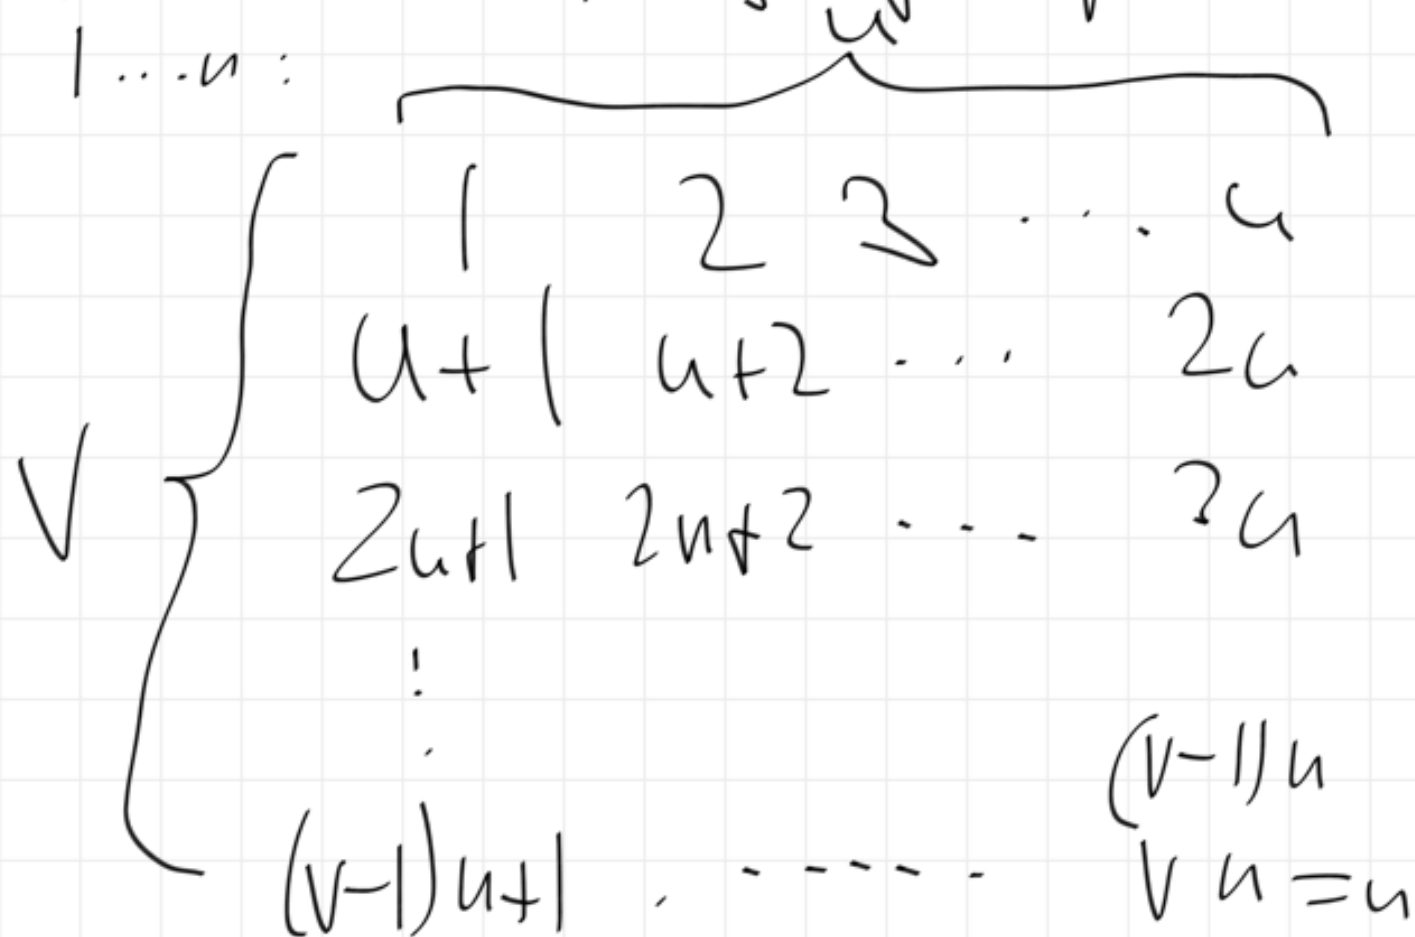 1...n:
u
1 2 3 .... u
u+1 u+2 ... 2u
V
2u+1 2u+2 --- 3u
(v-1)u
(v-1)u+1 . ----- vu=n